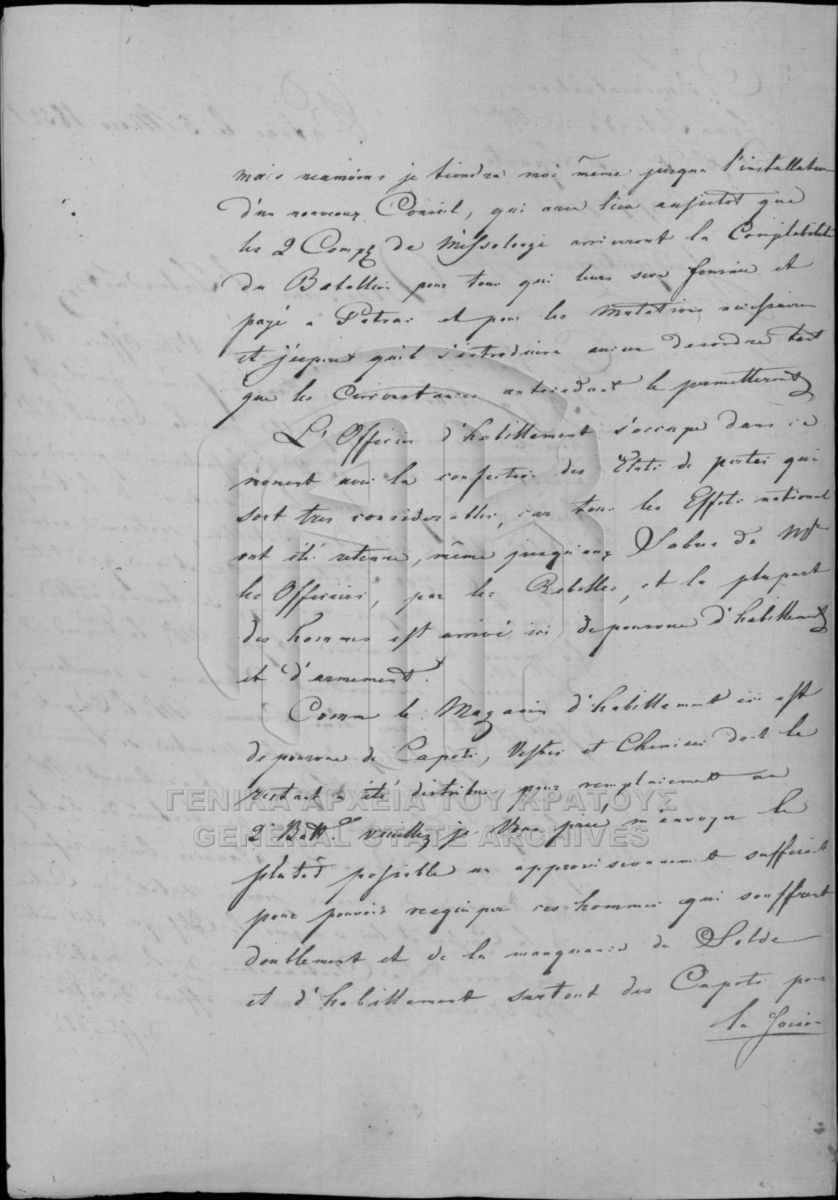 mais neamoins je tiendra moi même jusqua l'installation
d'un nouveaux Conseil, qui aura lieu ausitot que
les 2 Comp. de Missolonge arriveront la Comptabilité
du Batallion pour tous qui leurs sera fournie et
payé a Patras et pour les Mutations nécessaires
et j'espere qu'il s'introduira aucun desordre tant
que les Circonstances le permetteront
L'Officier d'habillement s'occupe dans ce
moment avec la confection des Etats de pertes qui
sont tres considerables, car tous les Effets national
ont été retenue, même jusqu'aux Sabres de Mrs
les Officiers, par les Rebelles, et la plupart
des hommes est arrivé ici depourvue d'habillement
et d'armement.
Comme le Magasin d'habillement ici est
depourvue de Capots, Vestes et Chemises dont le
restant a été distribué pour remplaiement au
2e Batt.on veuillez je Vous prie, m'envoyer le
plutôt possible un approvisionnement suffisant
pour pouvoir reequiper ces hommes qui souffrent
doublement et de la manquance de Solde
et d'habillement surtout des Capots pour
ΓΕΝΙΚΑ ΑΡΧΕΙΑ ΤΟΥ ΚΡΑΤΟΥΣ
GENERAL STATE ARCHIVES